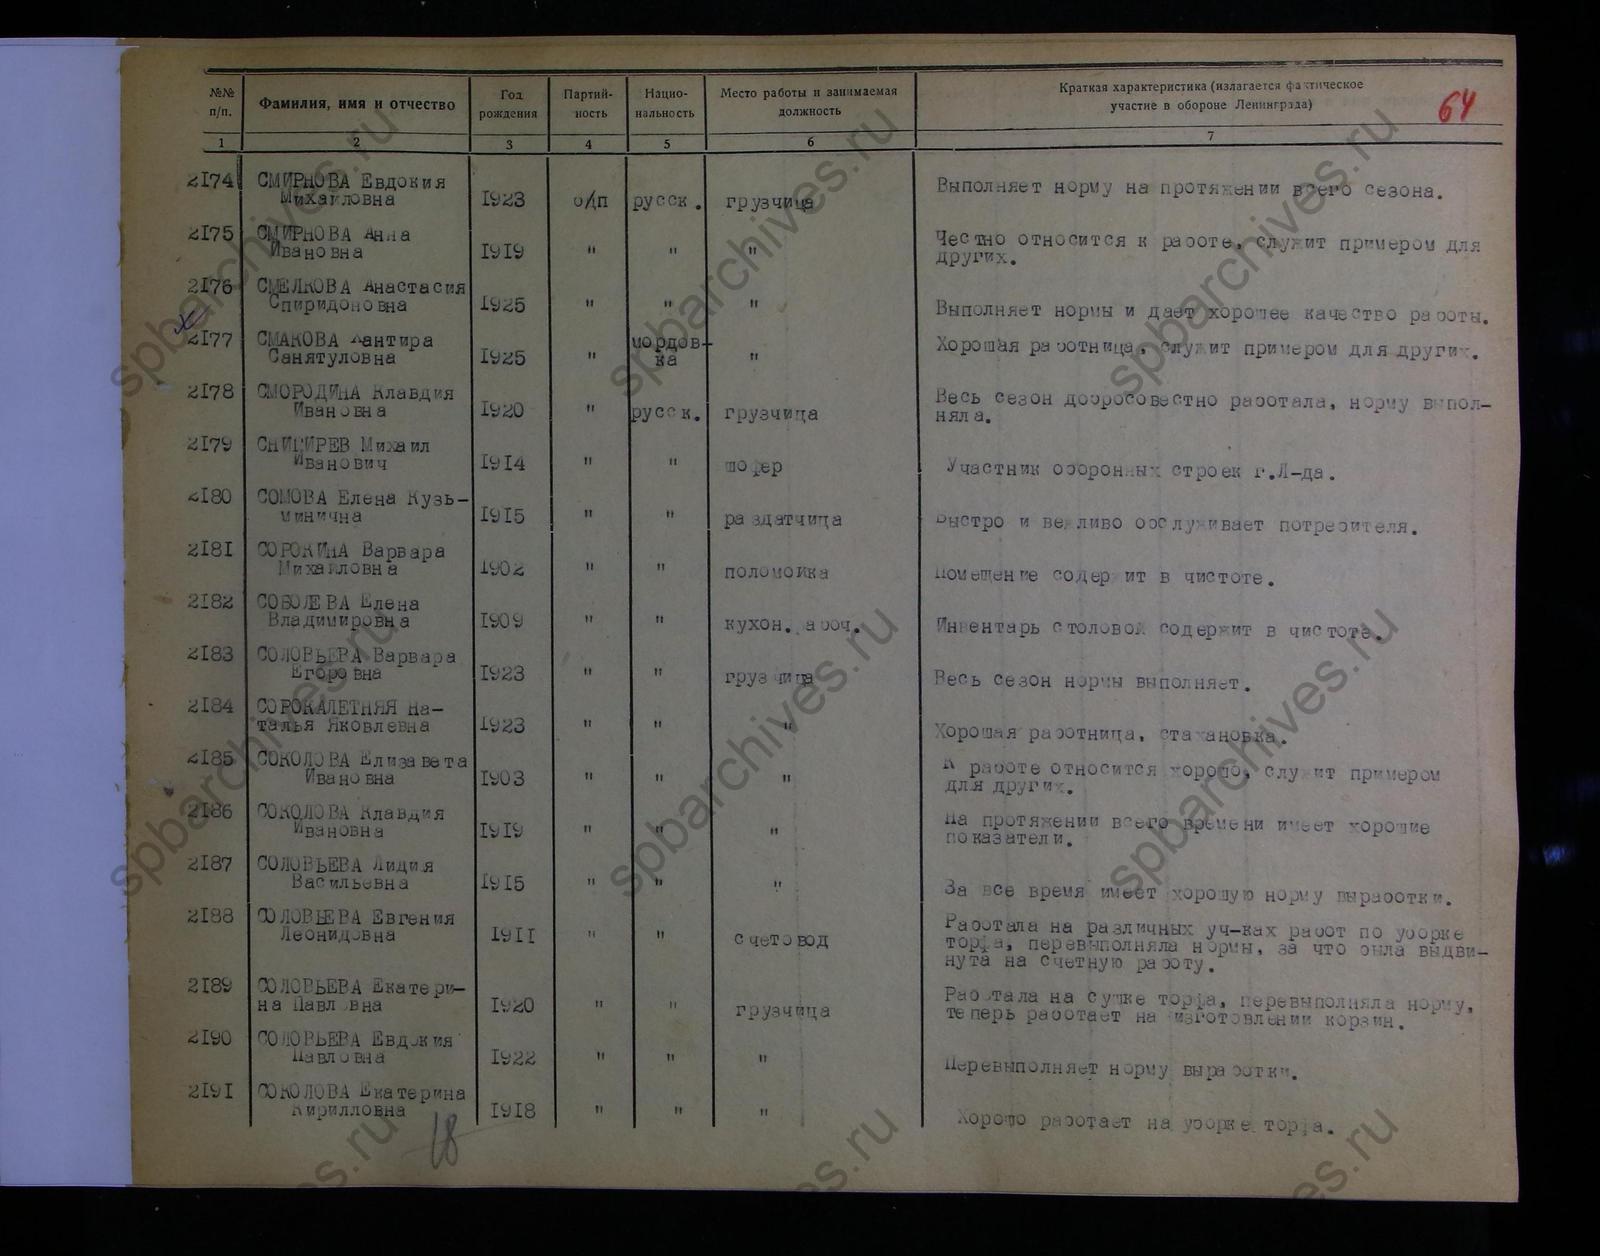 №№ п/п. Фамилия, имя и отчество Год рождения Партий-ность Нацио-нальность Место работы и занимаемая должность Краткая характеристика (излагается фактическое участие в обороне Ленинграда) 64
1 2 3 4 5 6 7
2174 СМИРНОВА Евдокия
Михайловна 1923 б/п русск. грузчица Выполняет норму на протяжении всего сезона.
2175 СМИРНОВА Анна
Ивановна 1919 " " " Честно относится к работе, служит примером для
других.
2176 СМЕЛКОВА Анастасия
Спиридоновна 1925 " " " Выполняет нормы и дает хорошее качество работы.
2177 СМАКОВА
Санятуловна 1925 " мордов-
ка " Хорошая работница, служит примером для других.
2178 СМОРОДИНА Клавдия
Ивановна 1920 " русск. грузчица Весь сезон добросовестно работала, норму выпол-
няла.
2179 СНИГИРЕВ Михаил
Иванович 1914 " " шофер Участник оборонных строек г.Л-да.
2180 СОМОВА Елена Кузь-
минична 1915 " " раздатчица Быстро и вежливо обслуживает потребителя.
2181 СОРОКИНА Варвара
Михайловна 1902 " " поломойка Помещение содержит в чистоте.
2182 СОБОЛЕВА Елена
Владимировна 1909 " " кухон. рабоч. Инвентарь столовой содержит в чистоте.
2183 СОЛОВЬЕВА Варвара
Егоровна 1923 " " грузчица Весь сезон нормы выполняет.
2184 СОРОКАЛЕТНЯЯ На-
талья Яковлевна 1923 " " " Хорошая работница, стахановка.
2185 СОКОЛОВА Елизавета
Ивановна 1903 " " " К работе относится хорошо, служит примером
для других.
2186 СОКОЛОВА Клавдия
Ивановна 1919 " " " На протяжении всего времени имеет хорошие
показатели.
2187 СОЛОВЬЕВА Лидия
Васильевна 1915 " " " За все время имеет хорошую норму выработки.
2188 СОЛОВЬЕВА Евгения
Леонидовна 1911 " " счетовод Работала на различных уч-ках работ по уборке
торфа, перевыполняла нормы, за что была выдви-
нута на счетную работу.
2189 СОЛОВЬЕВА Екатери-
на Павловна 1920 " " грузчица Работала на сушке торфа, перевыполняла норму,
теперь работает на изготовлении корзин.
2190 СОЛОВЬЕВА Евдокия
Павловна 1922 " " " Перевыполняет норму выработки.
2191 СОКОЛОВА Екатерина
Кирилловна 1918 " " " Хорошо работает на уборке торфа.
18
spbarchives.ru